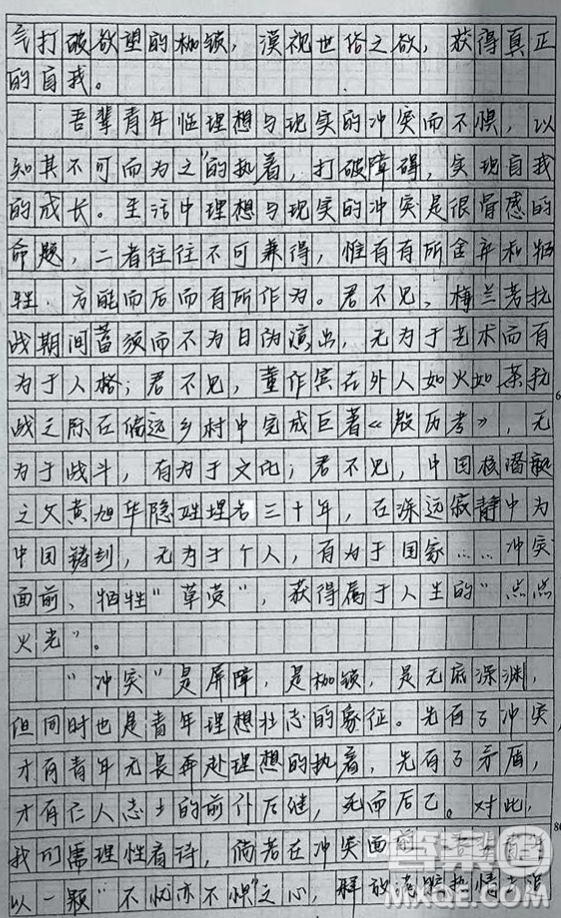 气打破欲望的枷锁，漠视世俗之欲，获得真正
的自我。
吾辈青年临理想与现实的冲突而不惧，以
知其不可而为之”的执着，打破障碍，实现自我
的成长。生活中理想与现实的冲突是很骨感的
命题，二者往往不可兼得，惟有有所舍弃和牺
牲．方能而后而有所作为。君不见，梅兰芳抗
战期间蓄须而不为日伪演出，无为于艺术而有
为于人格；君不见，董作宾在外人如火如荼抗
战之际在偏远乡村中完成巨著《殷历考》，无
为于战斗，有为于文化；君不见，中国核潜艇
之父黄旭华隐姓埋名三十年，在深远寂静中为
中国铸剑，无为于个人，有为于国家……冲突
面前，牺牲“草黄”，获得属于人生的“点点
火光”。
“冲突”是屏障，是枷锁，是无底深渊，
但同时也是青年理想壮志的象征。先有了冲突，
才有青年无畏奔赴理想的执着，先有了矛盾，
才有仁人志士的前仆后继，死而后已。对此，
我们需理性看待，倘若在冲突面前
以一颗“不忧亦不惧”之心，释放满腔热情去
答案圈
MXQE.COM